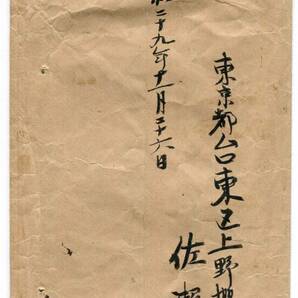 東京都台東区上野桜
佐
二十九年十一月二十六日